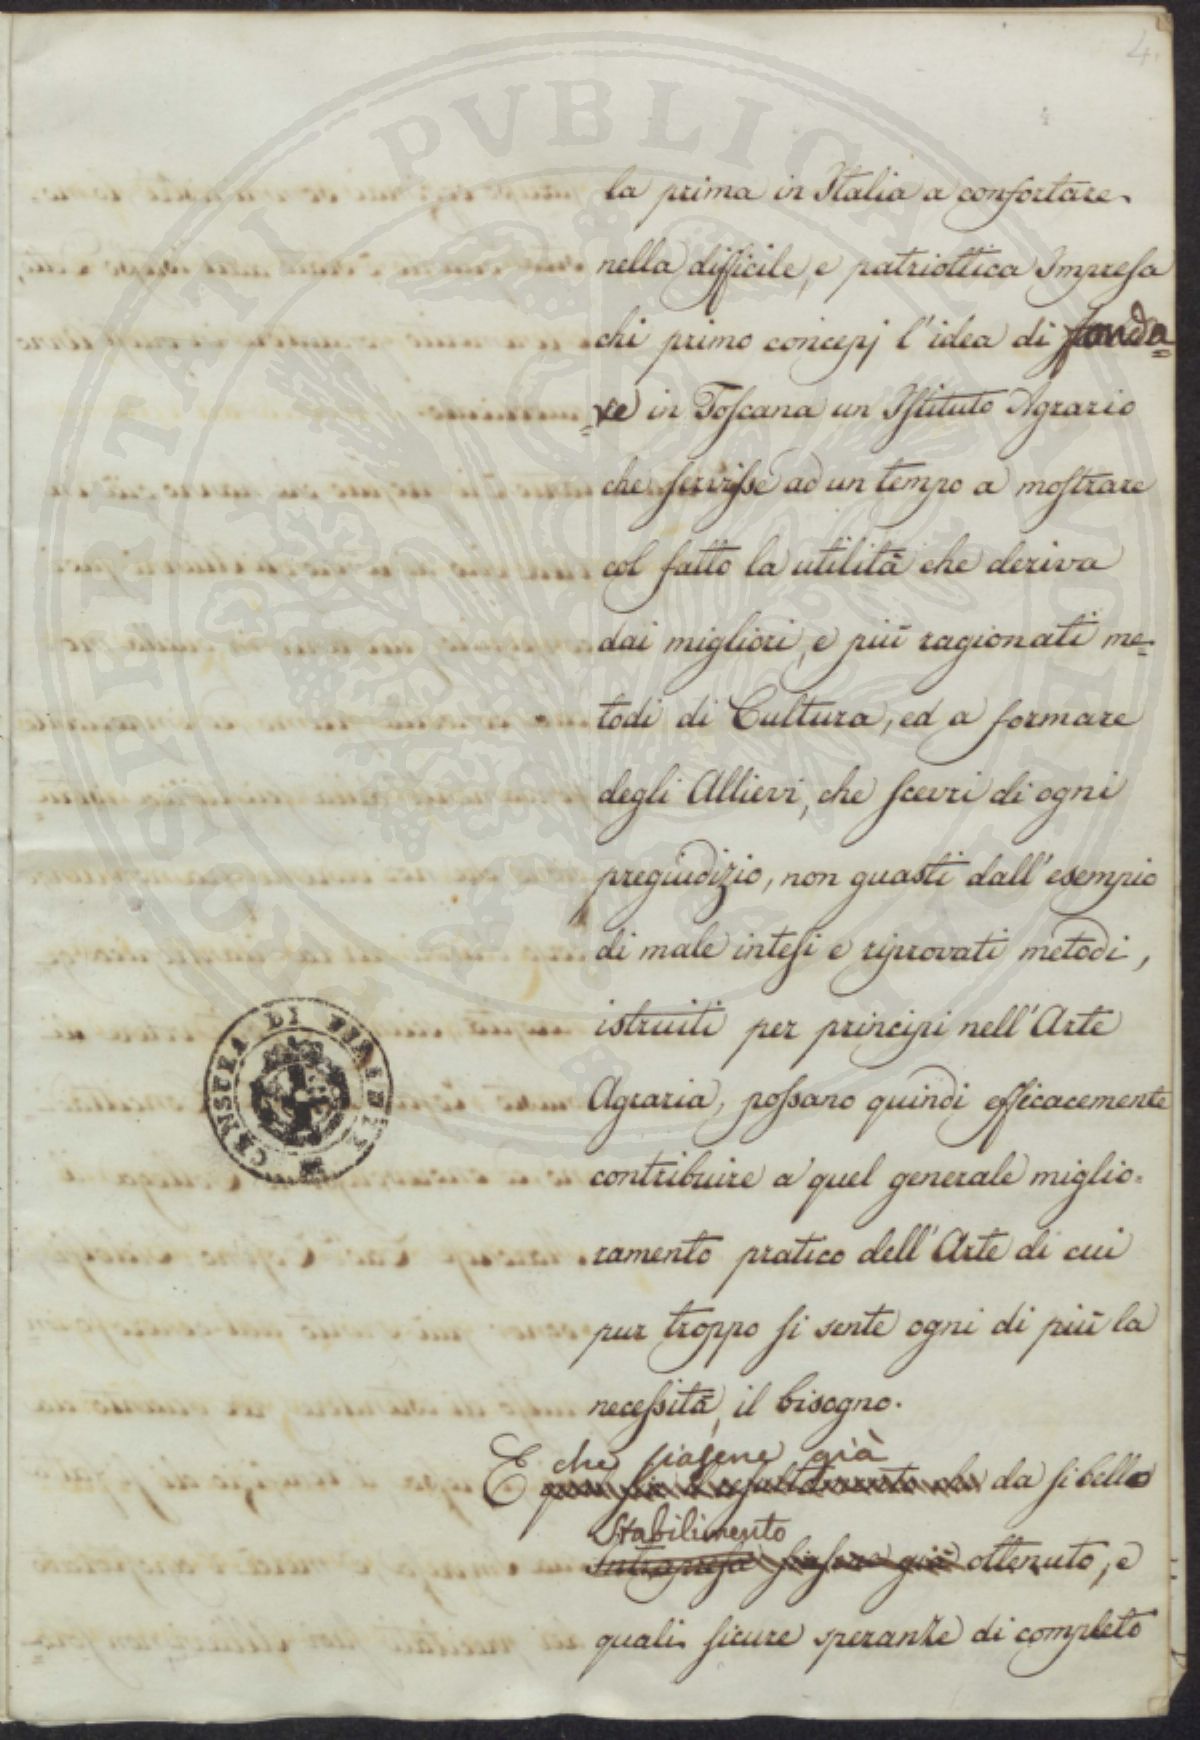 4.
la prima in Italia a confortare
nella difficile, e patriottica Impresa
chi primo concepj l'idea di fonda=
=re in Toscana un Istituto Agrario
che servisse ad un tempo a mostrare
col fatto la utilità che deriva
dai migliori, e più ragionati me=
todi di Cultura, ed a formare
degli Allievi, che scevri di ogni
pregiudizio, non guasti dall'esempio
di male intesi e riprovati metodi,
istruiti per principi nell'Arte
Agraria, possano quindi efficacemente
contribuire a quel generale miglio=
ramento pratico dell'Arte di cui
pur troppo si sente ogni di più la
necessità, il bisogno.
che siasene già
E da si bello
Stabilimento
ottenuto, e
quali sicure speranze di completo
PROSPERITATI PVBLICAE
CENSURA DI